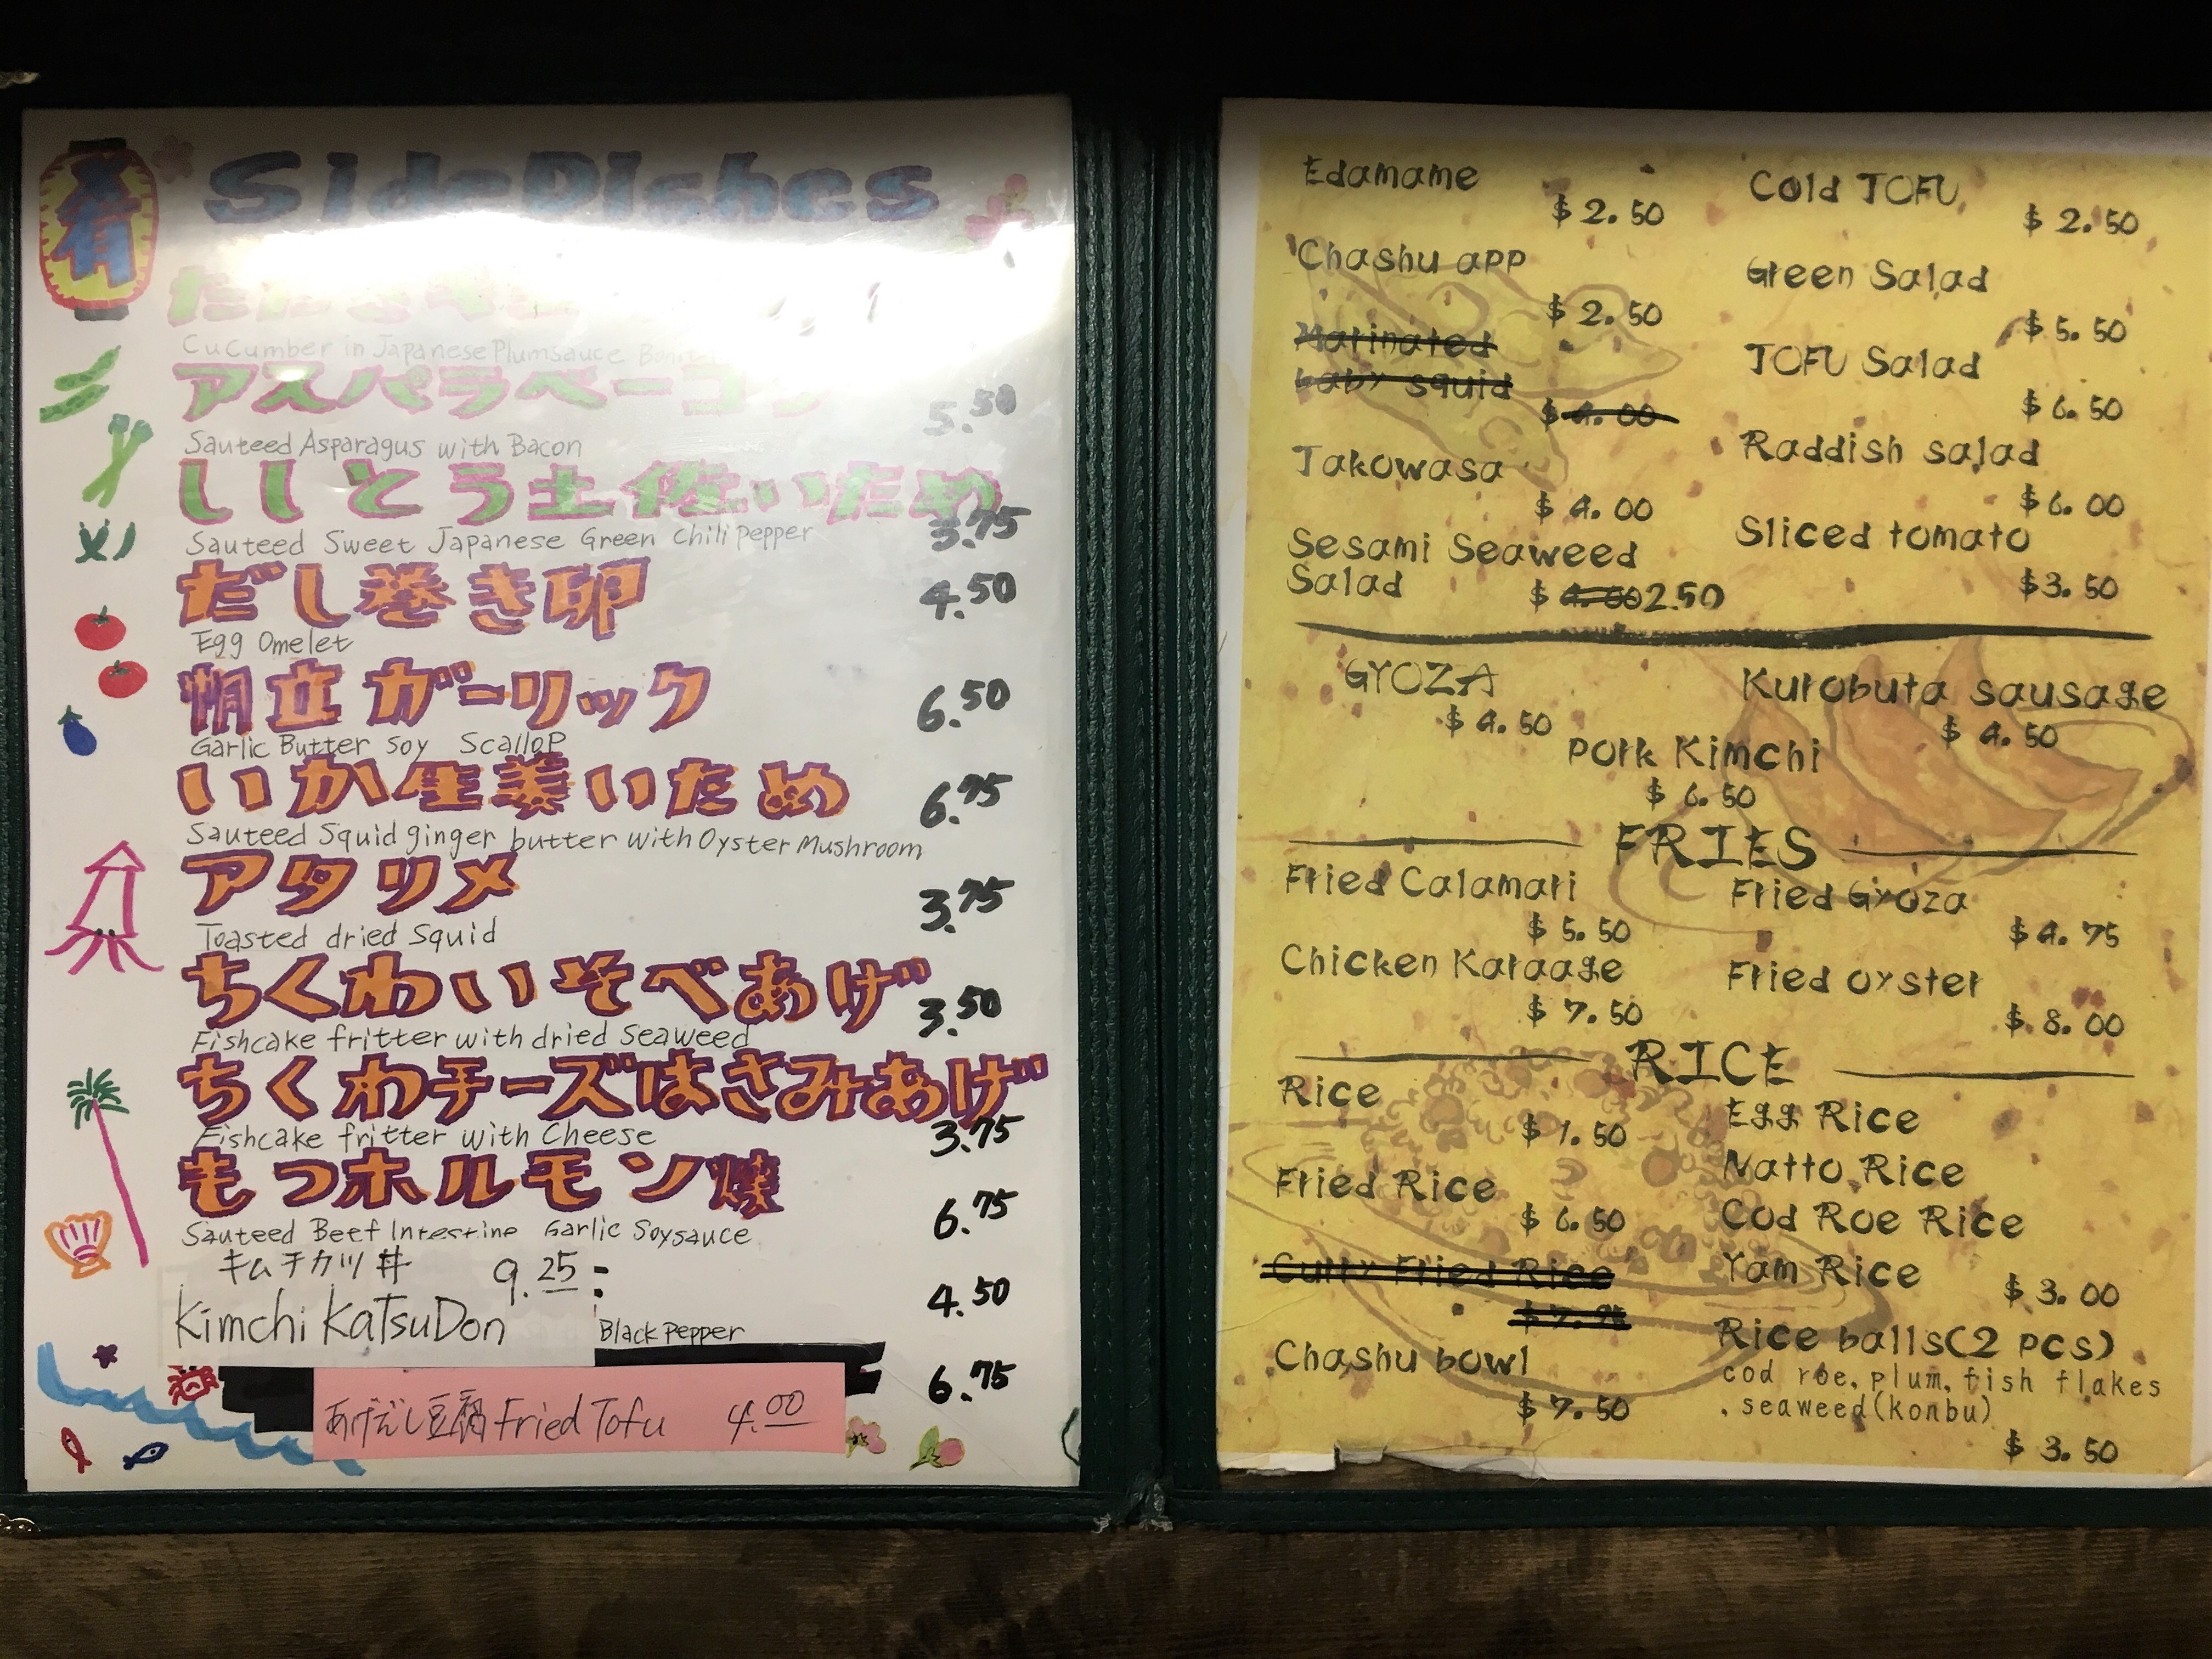 Side Dishes
Cucumber in Japanese Plumsauce
アスパラベーコン
5.50
Sauteed Asparagus with Bacon
ししとう土佐いため
3.75
Sauteed Sweet Japanese Green Chili Pepper
だし巻き卵
4.50
Egg Omelet
帆立ガーリック
6.50
Garlic Butter Soy Scallop
いか生姜いため
6.75
Sauteed Squid ginger butter with Oyster Mushroom
アタリメ
3.75
Toasted dried Squid
ちくわいそべあげ
3.50
Fishcake fritter with dried Seaweed
ちくわチーズはさみあげ
3.75
Fishcake fritter with Cheese
もつホルモン焼
6.75
Sauteed Beef Intestine Garlic Soysauce
キムチカツ丼 9.25
4.50
Kimchi KaTsuDon
Black Pepper
6.75
あげだし豆腐 Fried Tofu 4.00
Edamame
$ 2.50
Chashu app
$ 2.50
Marinated
baby squid
$ 4.00
Takowasa
$ 4.00
Sesami Seaweed
Salad
$ 4.00 2.50
Cold TOFU
$ 2.50
Green Salad
$ 5.50
TOFU Salad
$ 6.50
Raddish salad
$ 6.00
Sliced tomato
$3.50
GYOZA
$ 4.50
Kurobuta sausage
$ 4.50
Pork Kimchi
$ 6.50
FRIES
Fried Calamari
$ 5.50
Chicken Karaage
$ 7.50
Fried Gyoza
$4.75
Fried oyster
$ 8.00
RICE
Rice
$ 1.50
Fried Rice
$ 6.50
Curry Fried Rice
Chashu bowl
$ 7.50
Egg Rice
Natto Rice
Cod Roe Rice
Yam Rice
$ 3.00
Rice balls(2 pcs)
cod roe, plum, fish flakes
, seaweed(konbu)
$ 3.50